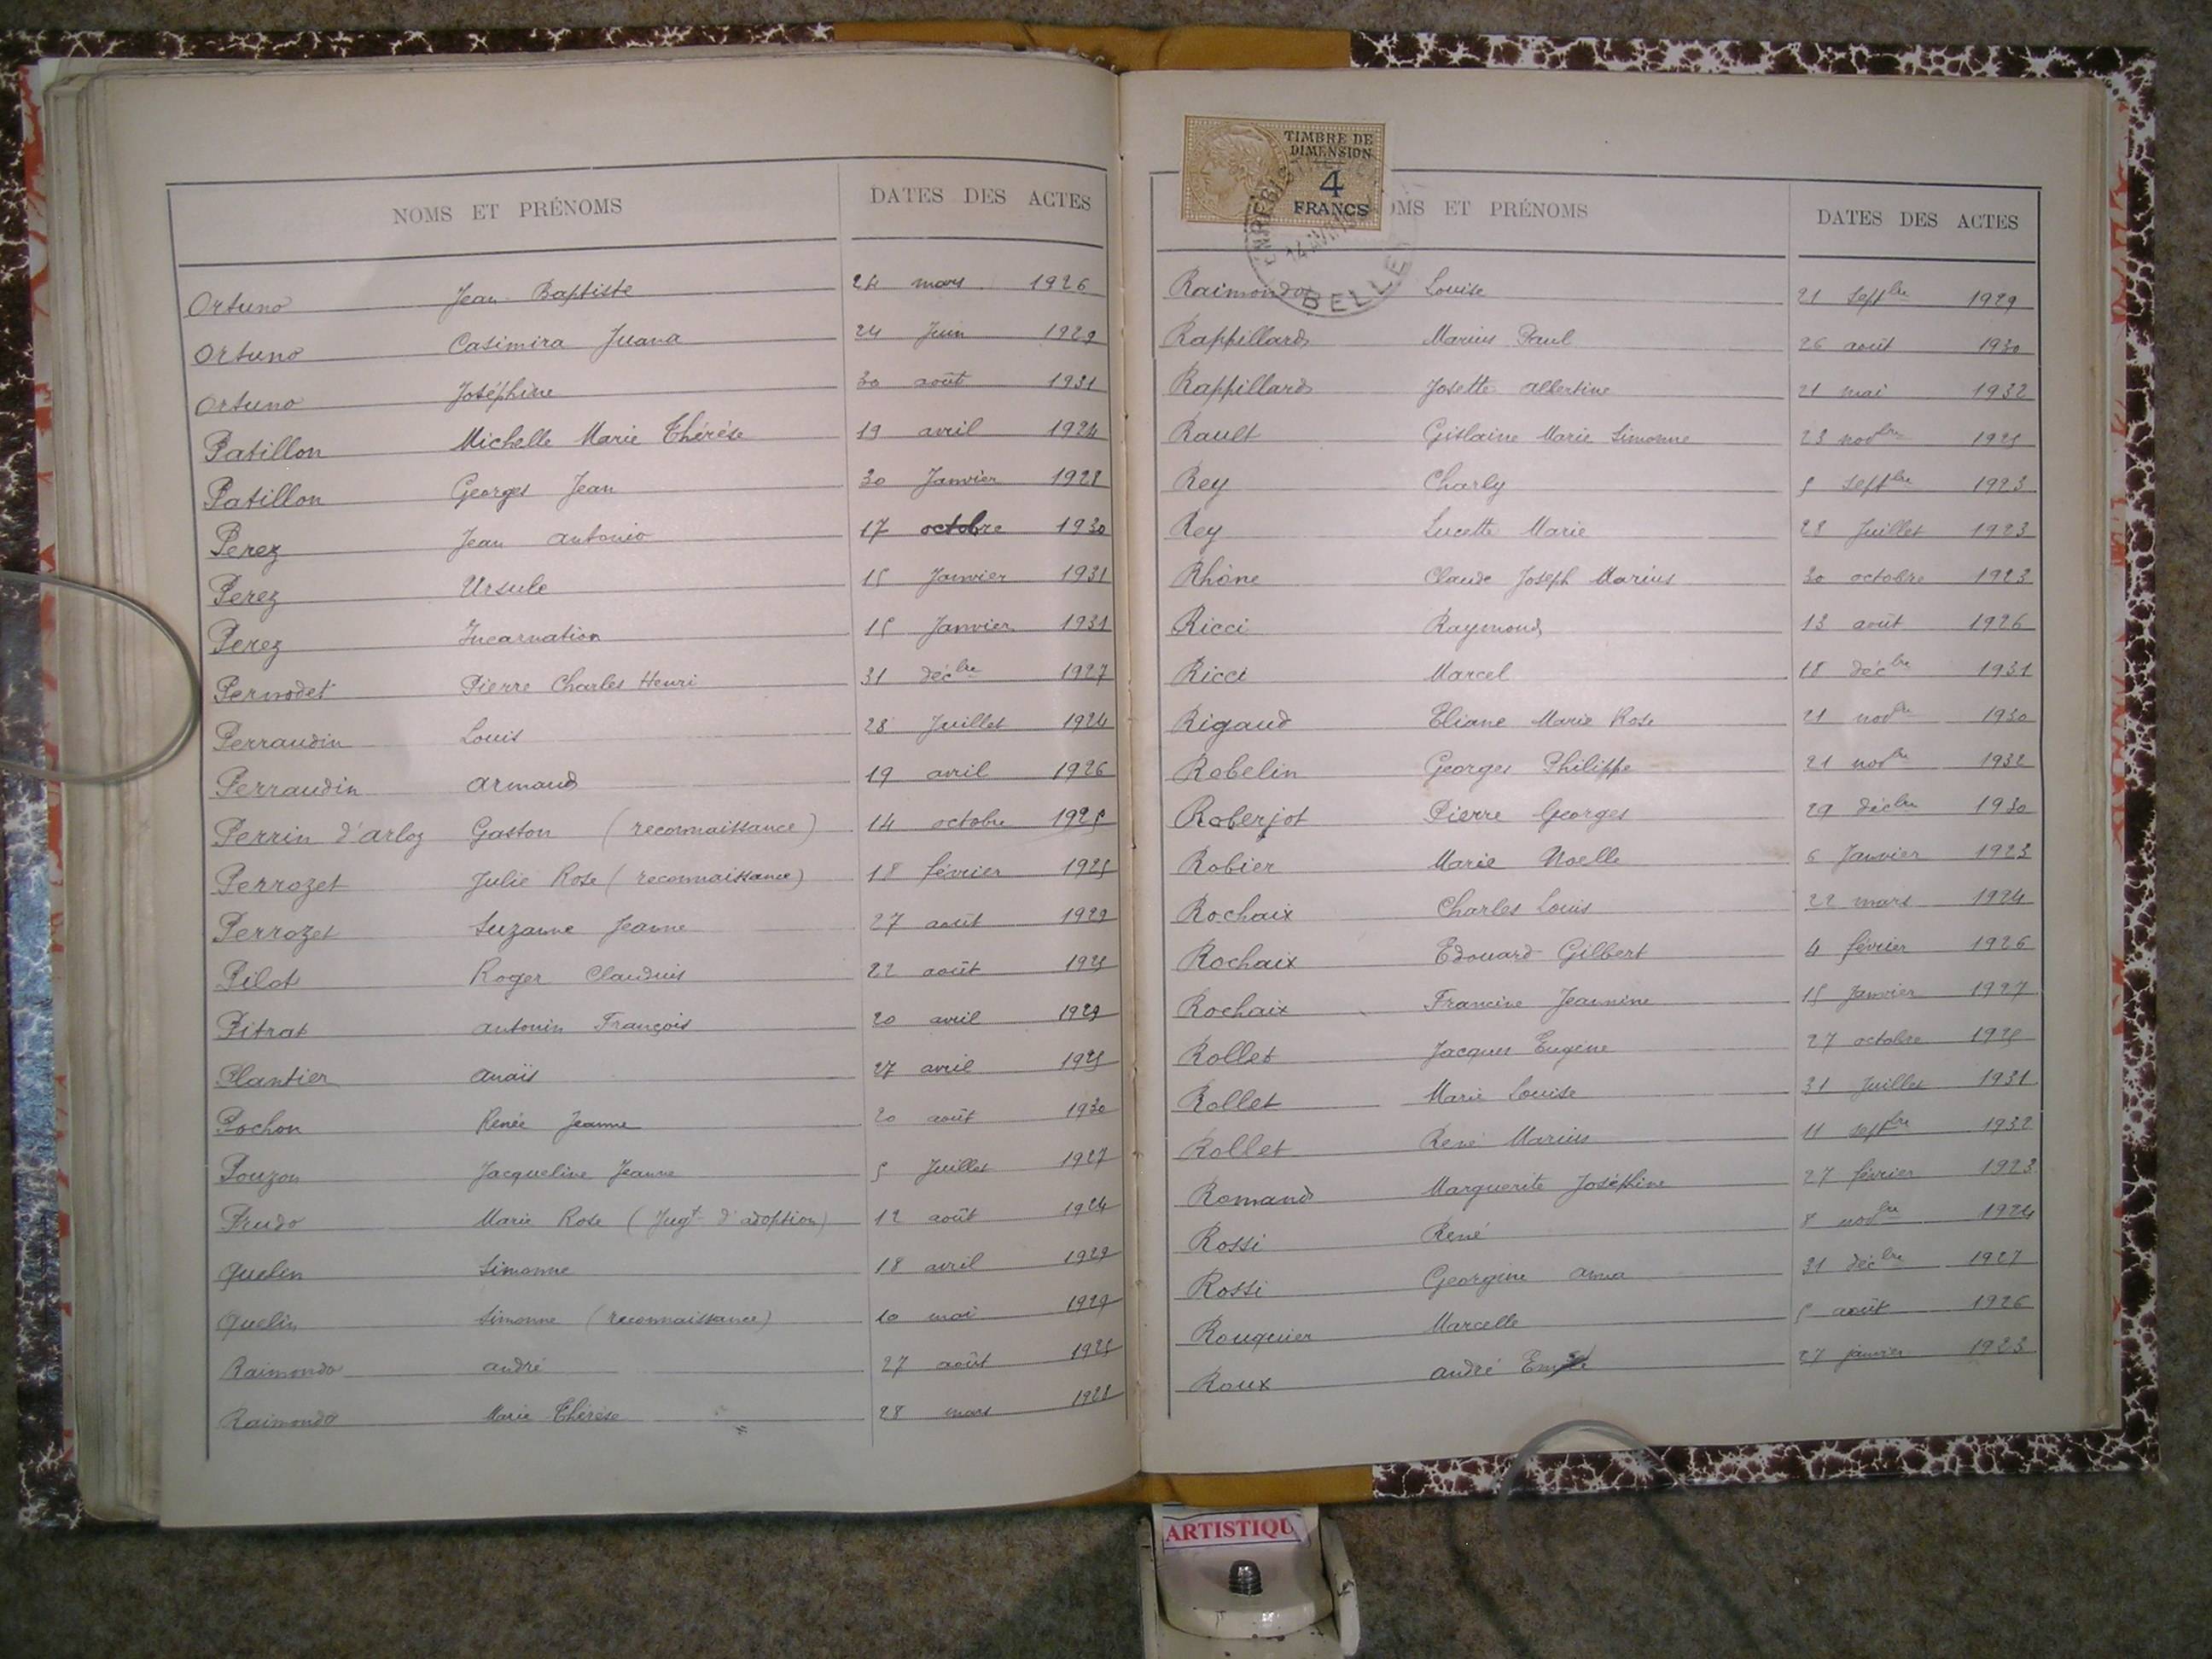 NOMS ET PRÉNOMS DATES DES ACTES
Ortuno Jean Baptiste 24 mars 1926
Ortuno Casimira Juana 24 Juin 1929
Ortuno Joséphine 30 août 1931
Patillon Michelle Marie Thérèse 19 avril 1924
Patillon Georges Jean 30 Janvier 1928
Perez Jean Antonio 17 octobre 1930
Perez Ursule 15 Janvier 1931
Perez Incarnation 15 Janvier 1931
Pernodet Pierre Charles Henri 31 décbre 1927
Perraudin Louis 28 Juillet 1924
Perraudin Armand 19 avril 1926
Perrin d'Arloz Gaston (reconnaissance) 14 octobre 1925
Perrozet Julie Rose (reconnaissance) 18 février 1925
Perrozet Suzanne Jeanne 27 août 1929
Pilot Roger Claudius 22 août 1925
Pitrat Antonin François 20 avril 1929
Plantier Anaïs 27 avril 1925
Pochon Renée Jeanne 20 août 1930
Pouzon Jacqueline Jeanne 5 Juillet 1927
Prudo Marie Rose (Jugt d'adoption) 12 août 1924
Quelin Simonne 18 avril 1929
Quelin Simonne (reconnaissance) 10 mai 1929
Raimondo André 27 août 1925
Raimondo Marie Thérèse 28 mars 1928
TIMBRE DE
DIMENSION
4
FRANCS
14 AVR
BELLE
OMS ET PRÉNOMS DATES DES ACTES
Raimondo Louise 21 septbre 1929
Rappillard Marius Paul 26 août 1930
Rappillard Josette Albertine 21 mai 1932
Rault Gislaine Marie Simonne 23 novbre 1925
Rey Charly 5 septbre 1923
Rey Lucette Marie 28 Juillet 1923
Rhône Claude Joseph Marius 30 octobre 1923
Ricci Raymond 13 août 1926
Ricci Marcel 18 décbre 1931
Rigaud Eliane Marie Rose 21 novbre 1930
Robelin Georges Philippe 21 novbre 1932
Roberjot Pierre Georges 29 décbre 1930
Robier Marie Noelle 6 Janvier 1923
Rochaix Charles Louis 22 mars 1924
Rochaix Edouard Gilbert 4 février 1926
Rochaix Francine Jeannine 15 Janvier 1927
Rollet Jacques Eugène 27 octobre 1925
Rollet Marie Louise 31 Juillet 1931
Rollet René Marius 11 septbre 1932
Romand Marguerite Joséphine 27 février 1923
Rossi René 8 novbre 1924
Rossi Georgine Anna 31 décbre 1927
Rouquier Marcelle 5 août 1926
Roux André 27 janvier 1923
ARTISTIQU